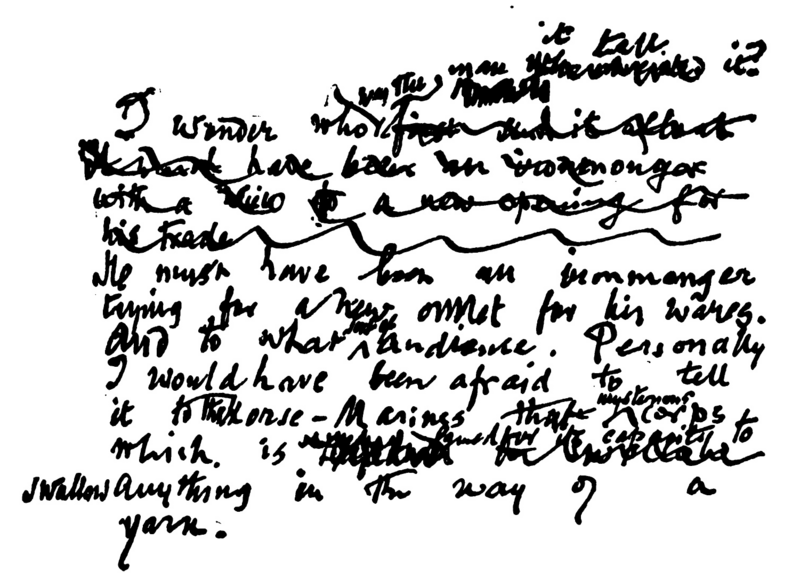 it tall.
was the man who originated it?
I wonder who first
It must have been an ironmonger
with a view to a new opening for
his trade
He must have been an ironmonger
trying for a new outlet for his wares.
And to what sort of audience. Personally
I would have been afraid to tell
mysterious
it to the Horse-Marines that corps
famed for its capacity to
which is
swallow anything in the way of a
yarn.